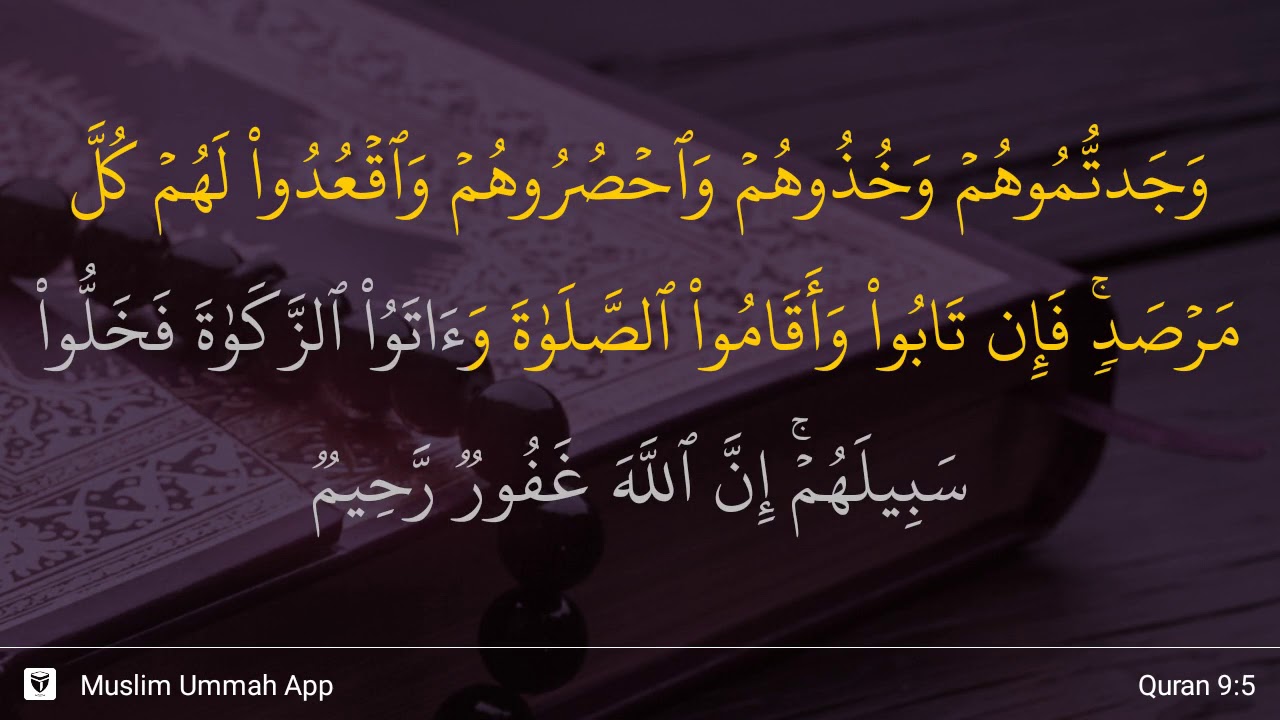 وَجَدتُّمُوهُمۡ وَخُذُوهُمۡ وَٱحۡصُرُوهُمۡ وَٱقۡعُدُواْ لَهُمۡ كُلَّ
مَرۡصَدٖۚ فَإِن تَابُواْ وَأَقَامُواْ ٱلصَّلَوٰةَ وَءَاتَوُاْ ٱلزَّكَوٰةَ فَخَلُّواْ
سَبِيلَهُمۡۚ إِنَّ ٱللَّهَ غَفُورٞ رَّحِيمٞ
Muslim Ummah App
Quran 9:5